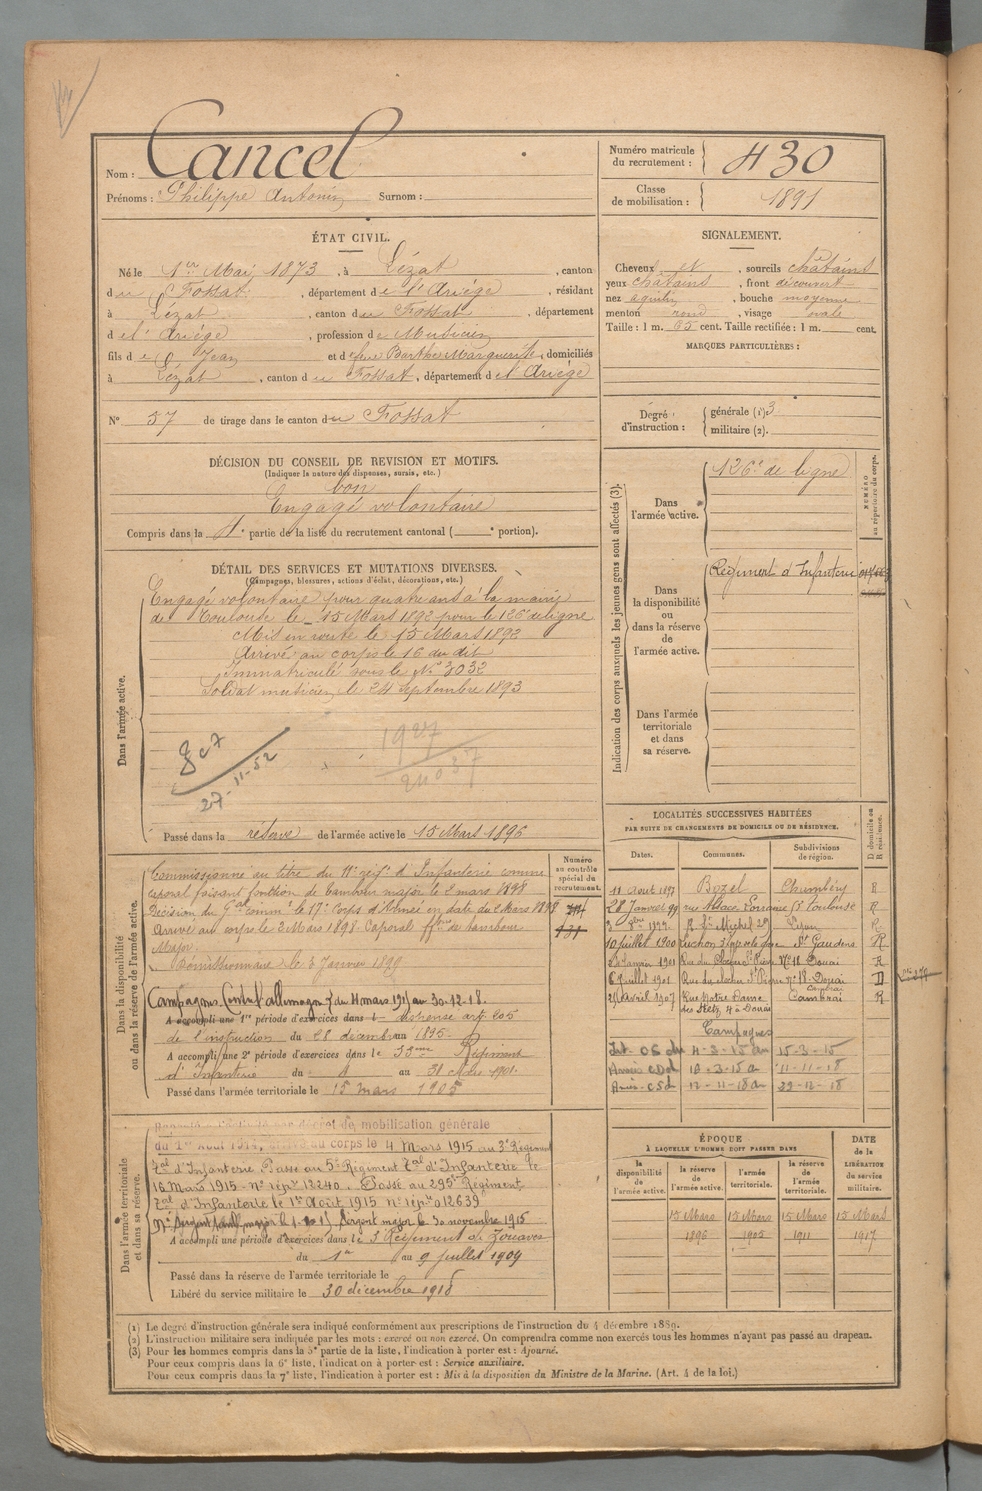 Nom : Cancel
Prénoms : Philippe Antonin Surnom :
Numéro matricule du recrutement : 430
Classe de mobilisation : 1891
ÉTAT CIVIL.
Né le 1er Mai 1873, à Lézat, canton
du Fossat, département de l'Ariège, résidant
à Lézat, canton du Fossat, département
de l'Ariège, profession de Musicien
fils de Jean et de feue Barthe Marguerite, domiciliés
à Lézat, canton du Fossat, département de l'Ariège
N° 57 de tirage dans le canton du Fossat
SIGNALEMENT.
Cheveux et, sourcils châtains
yeux châtains, front découvert
nez aquilin, bouche moyenne
menton rond, visage ovale
Taille : 1 m. 65 cent. Taille rectifiée : 1 m. cent.
MARQUES PARTICULIÈRES :
Degré d'instruction : générale (1). 3
militaire (2).
DÉCISION DU CONSEIL DE REVISION ET MOTIFS.
(Indiquer la nature des dispenses, sursis, etc.)
bon
Engagé volontaire
Compris dans la partie de la liste du recrutement cantonal ( portion).
DÉTAIL DES SERVICES ET MUTATIONS DIVERSES.
(Campagnes, blessures, actions d'éclat, décorations, etc.)
Dans l'armée active.
Engagé volontaire pour quatre ans à la mairie
de Toulouse le 15 Mars 1892 pour le 126e de ligne
Mis en route le 15 Mars 1892
Arrivé au corps le 16 du dit
Immatriculé sous le N° 3032
Soldat musicien le 24 septembre 1893
27-11-52
Passé dans la réserve de l'armée active le 15 Mars 1896
Indication des corps auxquels les jeunes gens sont affectés (3).
NUMÉRO au répertoire du corps.
Dans l'armée active.
126e de ligne
Dans la disponibilité ou dans la réserve de l'armée active.
Régiment d'Infanterie
Dans l'armée territoriale et dans sa réserve.
LOCALITÉS SUCCESSIVES HABITÉES
PAR SUITE DE CHANGEMENTS DE DOMICILE OU DE RÉSIDENCE.
D domicile ou R résidence.
Dates. Communes. Subdivisions de région.
11 aout 1897 Bozel Chambéry R
28 Janvier 99 rue Alsace Lorraine Toulouse R
R. St Michel 29 Lyon R
10 juillet 1900 Luchon St Gaudens R
1901 Douai R
6 juillet 1901 Rue du Clocher St Pierre N° 18 Douai D
24 Avril 1907 Rue Notre Dame Cambrai R
Campagnes
4-3-15 au 15-3-15
11-11-18
12-11-18 au
Dans la disponibilité ou dans la réserve de l'armée active.
Numéro au contrôle spécial du recrutement.
Commissionné au titre du 11e régt d'Infanterie comme
caporal faisant fonction de tambour major le 2 mars 1898
Décision du Gal comm. le 17e Corps d'Armée en date du 2 Mars 1898
Arrivé au corps le 2 Mars 1898. Caporal ffons de tambour
Major.
Démissionnaire le 3 Janvier 1899
Campagnes. Contre l'allemagne du 4 mars 1915 au 30-12-18.
A accompli une 1re période d'exercices dans le
de l'instruction du 28 décembre 1895
A accompli une 2e période d'exercices dans le Régiment
d'Infanterie du 4 au 31 1901.
Passé dans l'armée territoriale le 15 mars 1905
Dans l'armée territoriale et dans sa réserve.
décret de mobilisation générale
du 1er Août 1914, arrivé au corps le 4 Mars 1915 au 3e Régiment
Tal d'Infanterie. Passé au 5e Régiment Tal d'Infanterie le
16 Mars 1915 - N° répre 13240. Passé au 295e Régiment
Tal d'Infanterie le 1er Août 1915 n° répre 012639
Sergent major le 30 novembre 1915
A accompli une période d'exercices dans le 3 Régiment de Zouaves
du 1er au 9 juillet 1909
Passé dans la réserve de l'armée territoriale le
Libéré du service militaire le 30 décembre 1918
ÉPOQUE
À LAQUELLE L'HOMME DOIT PASSER DANS
DATE de la LIBÉRATION du service militaire.
la disponibilité de l'armée active.
la réserve de l'armée active.
l'armée territoriale.
la réserve de l'armée territoriale.
15 Mars 15 Mars 15 Mars 15 Mars
1896 1905 1911 1917
(1) Le degré d'instruction générale sera indiqué conformément aux prescriptions de l'instruction du 4 décembre 1889.
(2) L'instruction militaire sera indiquée par les mots : exercé ou non exercé. On comprendra comme non exercés tous les hommes n'ayant pas passé au drapeau.
(3) Pour les hommes compris dans la 5e partie de la liste, l'indication à porter est : Ajourné.
Pour ceux compris dans la 6e liste, l'indication à porter est : Service auxiliaire.
Pour ceux compris dans la 7e liste, l'indication à porter est : Mis à la disposition du Ministre de la Marine. (Art. 4 de la loi.)